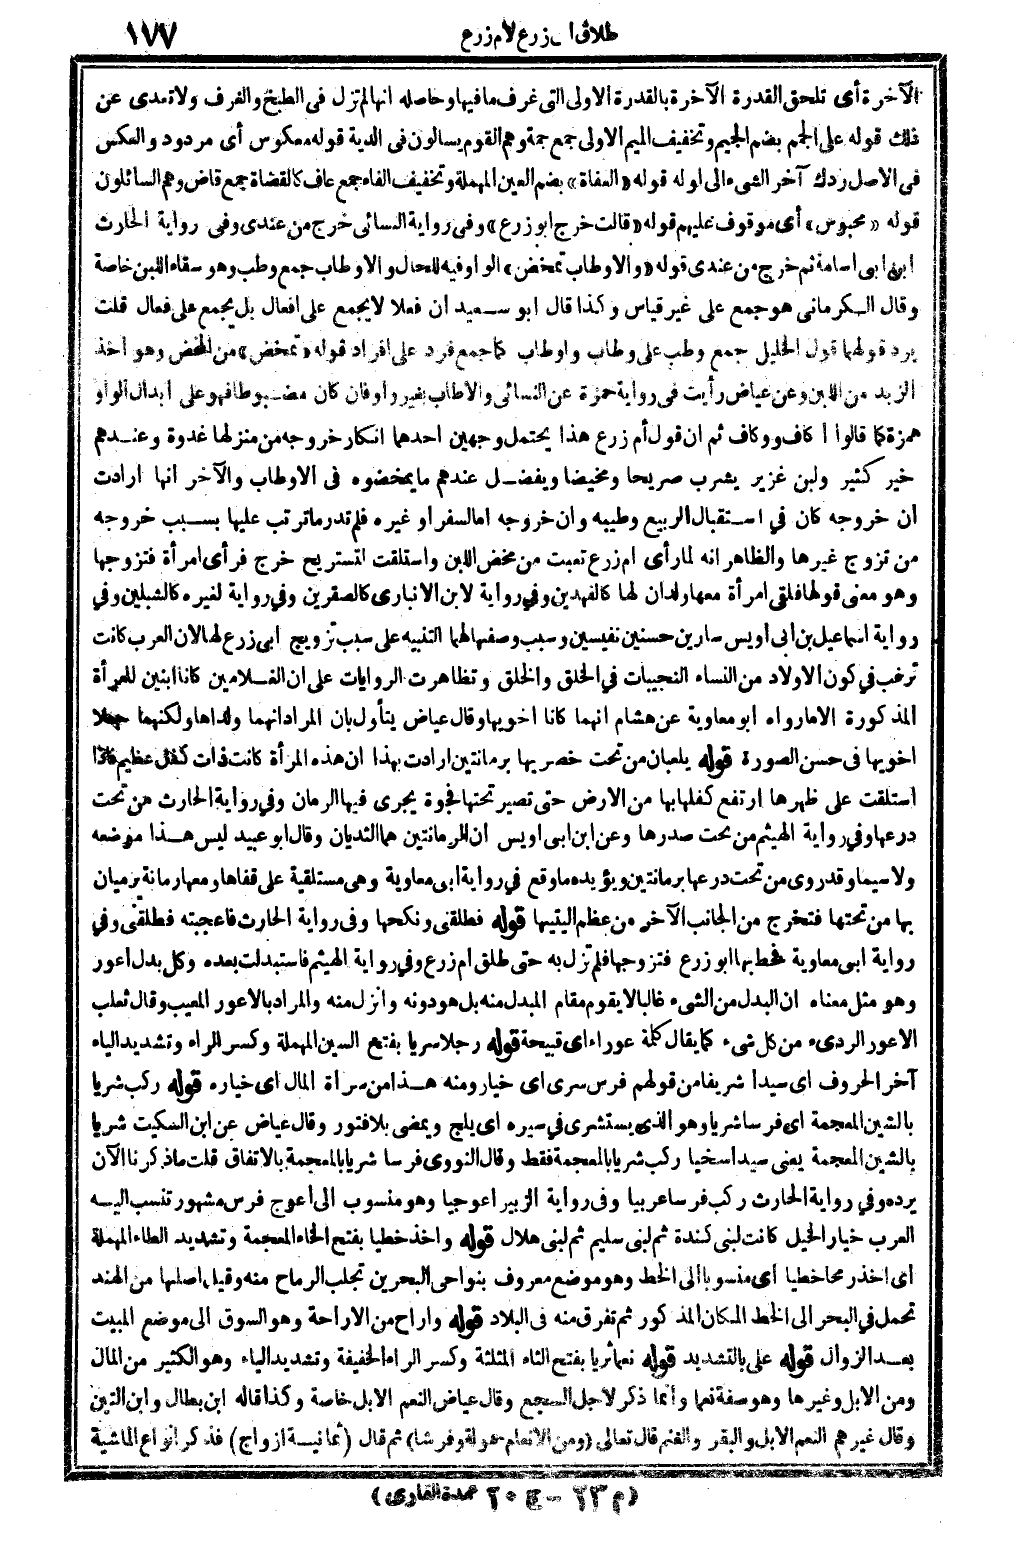 طلاق أبي زرع لأم زرع ١٧٧
الآخرة أي تلحق القدرة الآخرة بالقدرة الاولى التى غرف ما فيها وحاصله انها لم تزل فى الطبخ والغرف ولا تعدى عن
ذلك قوله على الجمم بضم الجيم وتخفيف الميم الاولى جمع جمة وهم القوم يسالون فى الدية قوله معكوس أى مردود والعكس
فى الاصل ردك آخر الشىء الى اوله قوله «العفاة» بضم العين المهملة وتخفيف الفاء جمع عاف كالقضاة جمع قاض وهم السائلون
قوله «محبوس» أى موقوف عليهم قوله «قالت خرج ابو زرع» وفى رواية النسائى خرج من عندى وفى رواية الحارث
ابن ابى اسامة ثم خرج من عندى قوله «والاوطاب تمخض» الواو فيه للحال والاوطاب جمع وطب وهو سقاء اللبن خاصة
وقال الكرمانى هو جمع على غير قياس وكذا قال ابو سعيد ان فعلا لا يجمع على افعال بل يجمع على فعال قلت
يرد قولهما قول الخليل جمع وطب على وطاب واوطاب كما جمع فرد على افراد قوله «تمخض» من المخض وهو اخذ
الزبد من اللبن وعن عياض رأيت فى رواية حمزة عن النسائى والاطاب بغير واو فان كان مضبوطا فهو على ابدال الواو
همزة كما قالوا اكاف ووكاف ثم ان قول أم زرع هذا يحتمل وجهين احدهما انكار خروجه من منزلها غدوة وعندهم
خير كثير ولبن غزير يشرب صريحا ومخيضا ويفضل عندهم ما يمخضوه فى الاوطاب والآخر انها ارادت
ان خروجه كان في استقبال الربيع وطيبه وان خروجه اما لسفر او غيره فلم تدر ما ترتب عليها بسبب خروجه
من تزوج غيرها والظاهر انه لما رأى ام زرع تعبت من مخض اللبن واستلقت لتستريح خرج فرأى امرأة فتزوجها
وهو معنى قولها فلقى امرأة معها ولدان لها كالفهدين وفي رواية لابن الانبارى كالصقرين وفي رواية لغيره كالشبلين وفي
رواية اسماعيل بن أبى أويس سارين حسنين نفيسين وسبب وصفها لهما التنبيه على سبب تزويج ابى زرع لها لان العرب كانت
ترغب في كون الاولاد من النساء النجيبات في الخلق والخلق وتظاهرت الروايات على ان الغلامين كانا ابنين للمرأة
المذكورة الا ما رواه ابو معاوية عن هشام انهما كانا اخويها وقال عياض يتأول بان المراد انهما ولداها ولكنهما جعلا
اخويها فى حسن الصورة قوله يلعبان من تحت خصريها برمانتين ارادت بهذا ان هذه المرأة كانت ذات كفل عظيم فاذا
استلقت على ظهرها ارتفع كفلها بها من الارض حتى تصير تحتها فجوة يجرى فيها الرمان وفي رواية الحارث من تحت
درعها وفي رواية الهيثم من تحت صدرها وعن ابن ابى اويس ان الرمانتين هما الثديان وقال ابو عبيد ليس هذا موضعه
ولا سيما وقد روى من تحت درعها برمانتين ويؤيده ما وقع في رواية ابى معاوية وهى مستلقية على قفاها ومعها رمانة يرميان
بها من تحتها فتخرج من الجانب الآخر من عظم اليتيها قوله فطلقنى ونكحها وفى رواية الحارث فاعجبته فطلقنى وفي
رواية ابى معاوية فخطبها ابو زرع فتزوجها فلم تزل به حتى طلق ام زرع وفي رواية الهيثم فاستبدلت بعده وكل بدل اعور
وهو مثل معناه ان البدل من الشىء غالبا لا يقوم مقام المبدل منه بل هو دونه وانزل منه والمراد بالاعور المعيب وقال ثعلب
الاعور الردىء من كل شىء كما يقال كلمة عوراء اى قبيحة قوله رجلا سريا بفتح السين المهملة وكسر الراء وتشديد الياء
آخر الحروف اى سيدا شريفا من قولهم فرس سرى اى خيار ومنه هذا من سرأة المال اى خياره قوله ركب شريا
بالشين المعجمة اى فرسا شريا وهو الذى يستشرى في سيره اى يلج ويمضى بلا فتور وقال عياض عن ابن السكيت شريا
بالشين المعجمة يعنى سيدا سخيا ركب شريا بالمعجمة فقط وقال النووى فرسا شريا بالمعجمة بالاتفاق قلت ما ذكرنا الآن
يرده وفي رواية الحارث ركب فرسا عربيا وفى رواية الزبير اعوجيا وهو منسوب الى اعوج فرس مشهور تنسب اليه
العرب خيار الخيل كانت لبنى كندة ثم لبنى سليم ثم لبنى هلال قوله واخذ خطيا بفتح الخاء المعجمة وتشديد الطاء المهملة
اى اخذ رمحا خطيا اى منسوبا الى الخط وهو موضع معروف بنواحى البحرين تجلب الرماح منه وقيل اصلها من الهند
تحمل في البحر الى الخط المكان المذكور ثم تفرق منه فى البلاد قوله واراح من الاراحة وهو السوق الى موضع المبيت
بعد الزوال قوله على بالتشديد قوله نعما ثريا بفتح الثاء المثلثة وكسر الراء الخفيفة وتشديد الياء وهو الكثير من المال
ومن الابل وغيرها وهو صفة نعما وانما ذكر لاجل السجع وقال عياض النعم الابل خاصة وكذا قاله ابن بطال وابن التين
وقال غيرهم النعم الابل والبقر والغنم قال تعالى (ومن الانعام حمولة وفرشا) ثم قال (ثمانية ازواج) فذكر انواع الماشية
(م ٢٣ – ج ٢٠ عمدة القارى)